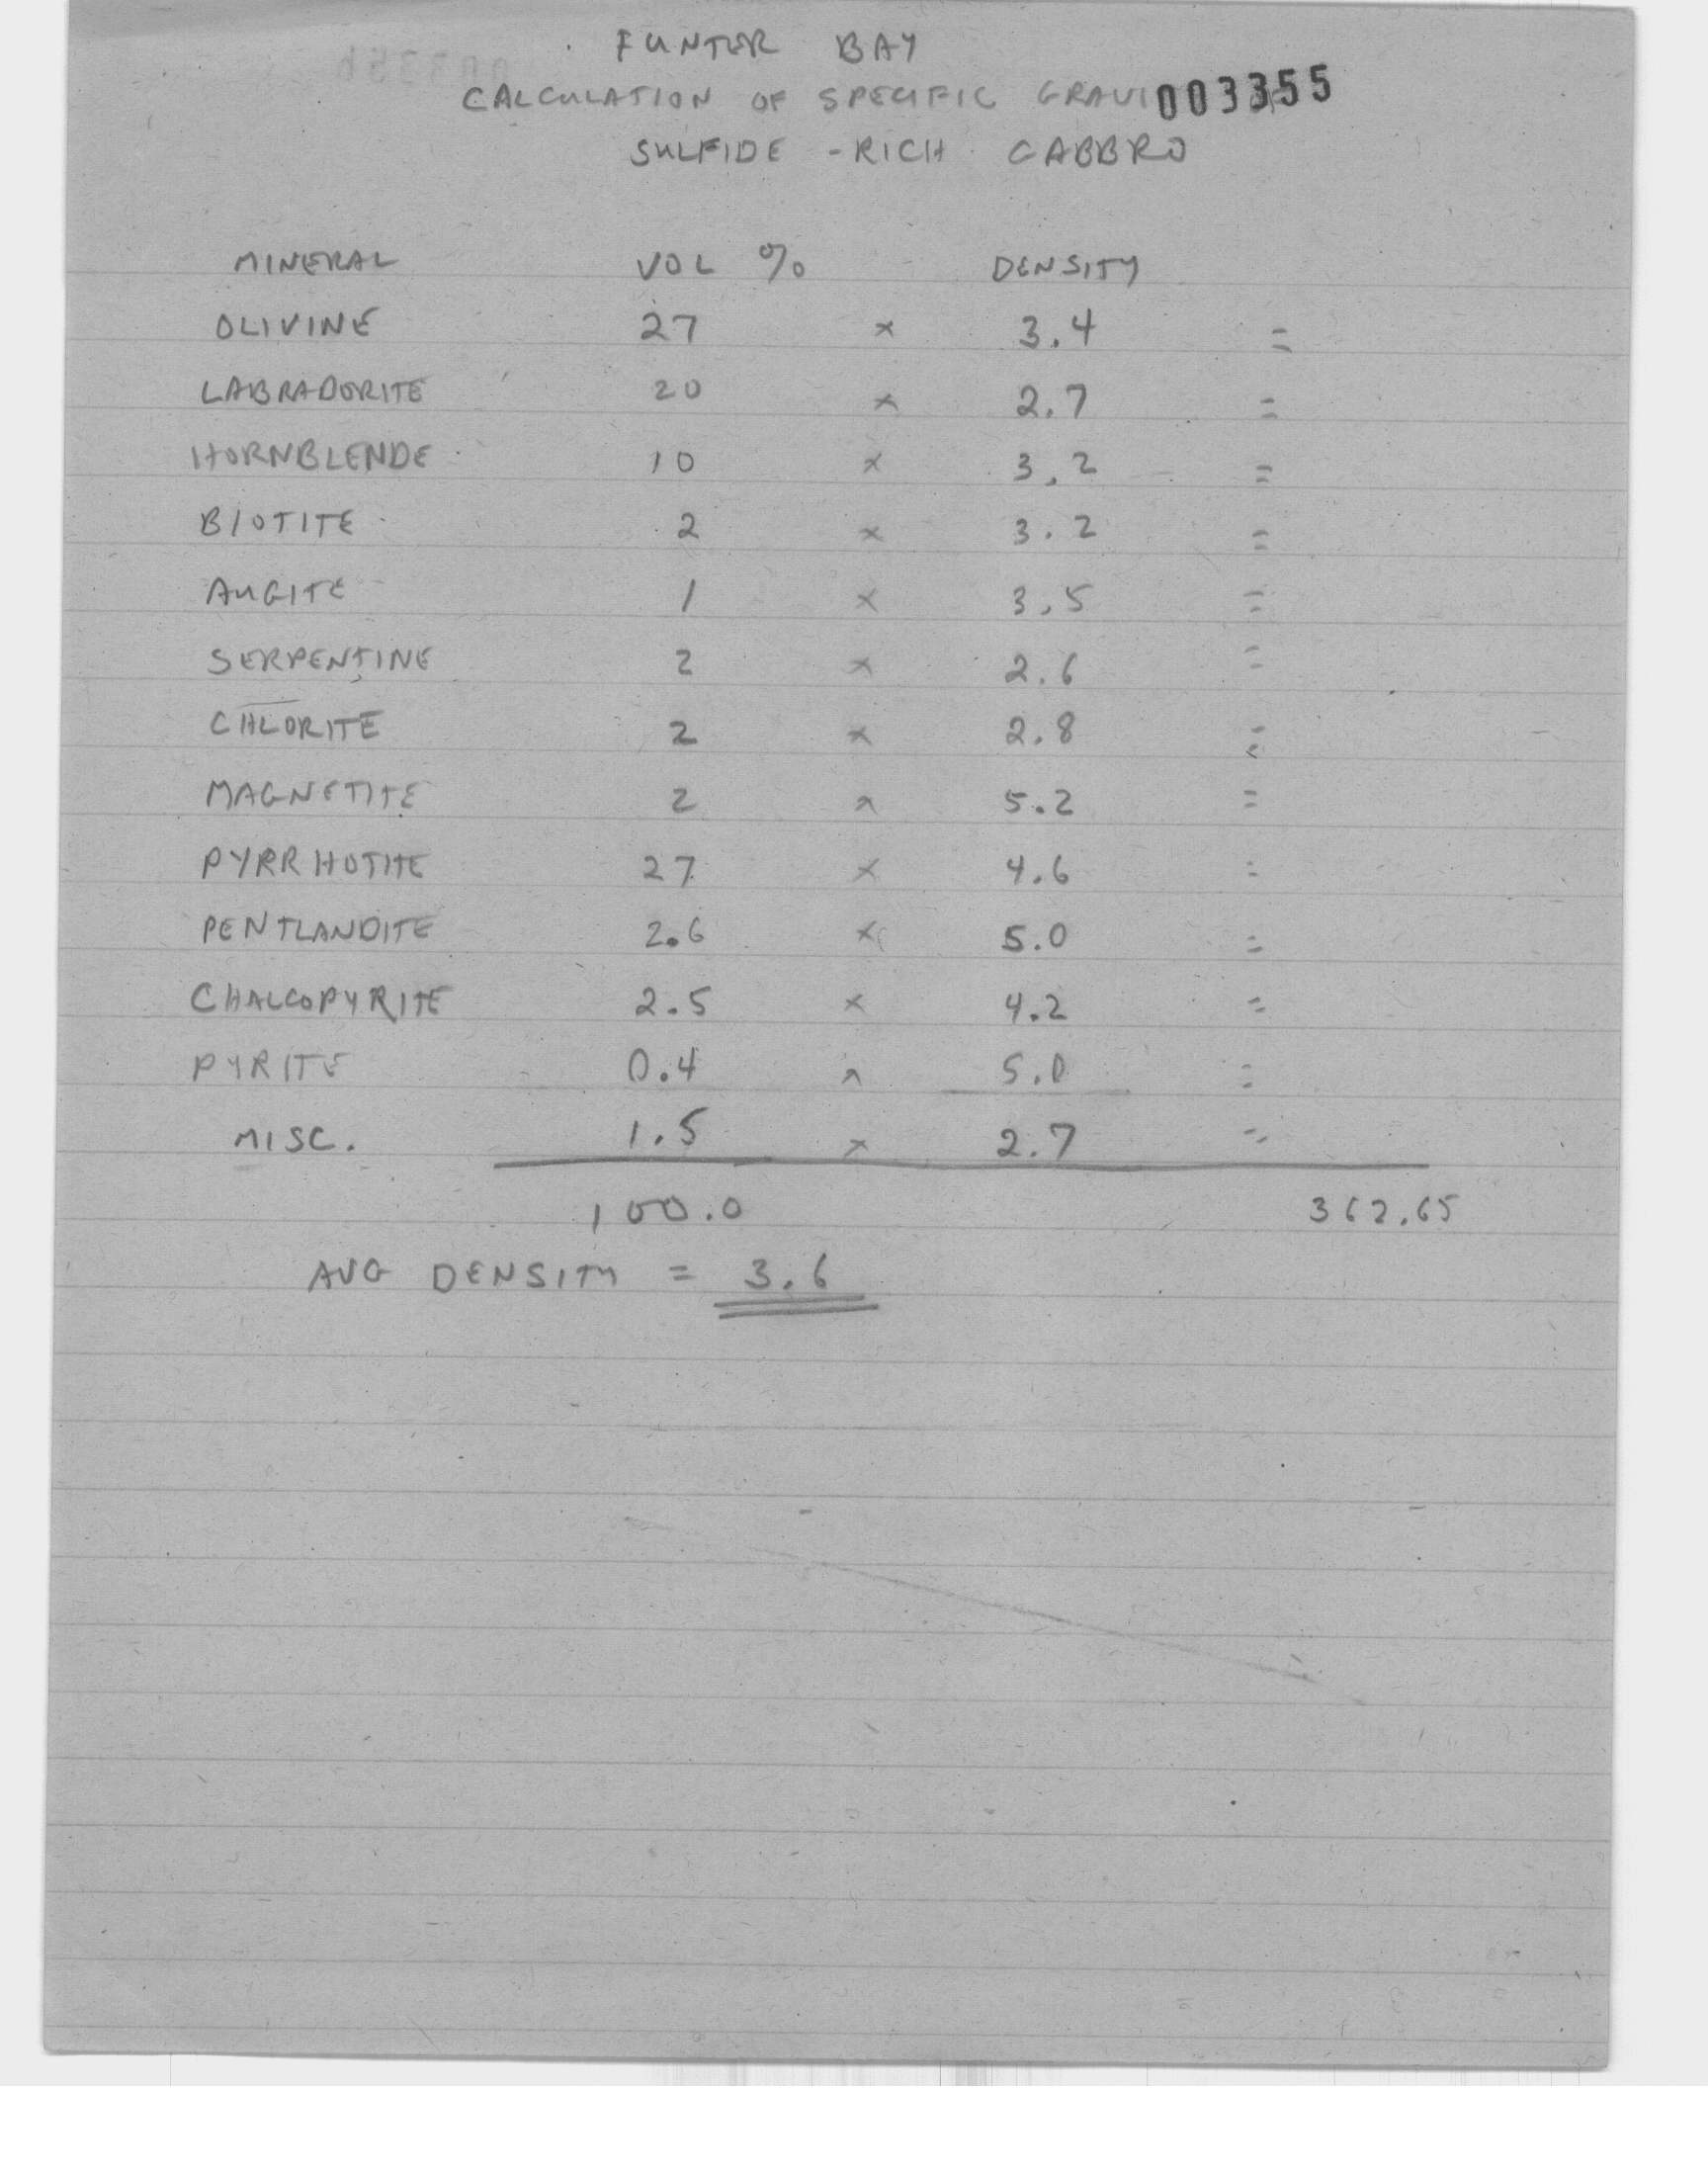 FUNTER BAY
CALCULATION OF SPECIFIC GRAVI 003355
SULFIDE - RICH GABBRO
MINERAL VOL % DENSITY
OLIVINE 27 x 3.4 =
LABRADORITE 20 x 2.7 =
HORNBLENDE 10 x 3.2 =
BIOTITE 2 x 3.2 =
AUGITE 1 x 3.5 =
SERPENTINE 2 x 2.6 =
CHLORITE 2 x 2.8 =
MAGNETITE 2 x 5.2 =
PYRRHOTITE 27 x 4.6 =
PENTLANDITE 2.6 x 5.0 =
CHALCOPYRITE 2.5 x 4.2 =
PYRITE 0.4 x 5.0 =
MISC. 1.5 x 2.7 =
100.0 362.65
AVG DENSITY = 3.6